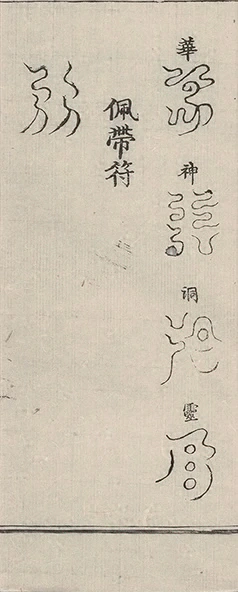 華
神
洞
靈
佩帶符